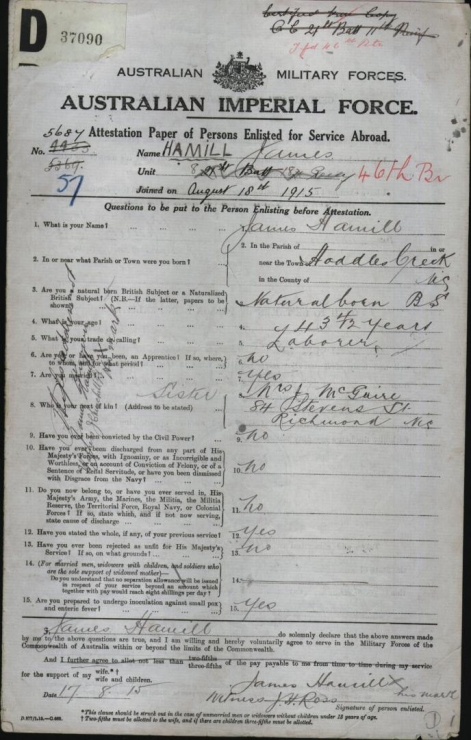 D
37090
AUSTRALIAN MILITARY FORCES.
AUSTRALIAN IMPERIAL FORCE.
Attestation Paper of Persons Enlisted for Service Abroad.
5687
No. Name HAMILL James
57
Unit 46th Bn
Joined on August 18th 1915
Questions to be put to the Person Enlisting before Attestation.
1. What is your Name? James Hamill
2. In or near what Parish or Town were you born?
2. In the Parish of in or
near the Town of Hoddles Creek
in the County of Vic
3. Are you a natural born British Subject or a Naturalized
British Subject? (N.B.—If the latter, papers to be
shown) Natural born B S
4. What is your age? 43 4/12 years
5. What is your trade or calling? Laborer
6. Are you, or have you been, an Apprentice? If so, where,
to whom, and for what period? No
7. Are you married? Yes
8. Who is your next of kin? (Address to be stated) Sister
Mrs J. McGuire
84 Stevens St
Richmond Vic
9. Have you ever been convicted by the Civil Power? No
10. Have you ever been discharged from any part of His
Majesty's Forces, with Ignominy, or as Incorrigible and
Worthless, or on account of Conviction of Felony, or of a
Sentence of Penal Servitude, or have you been dismissed
with Disgrace from the Navy? No
11. Do you now belong to, or have you ever served in, His
Majesty's Army, the Marines, the Militia, the Militia
Reserve, the Territorial Force, Royal Navy, or Colonial
Forces? If so, state which, and if not now serving,
state cause of discharge No
12. Have you stated the whole, if any, of your previous service? Yes
13. Have you ever been rejected as unfit for His Majesty's
Service? If so, on what grounds? No
14. (For married men, widowers with children, and soldiers who
are the sole support of widowed mother)—
Do you understand that no separation allowance will be issued
in respect of your service beyond an amount which
together with pay would reach eight shillings per day?
15. Are you prepared to undergo inoculation against small pox
and enteric fever? Yes
I, James Hamill do solemnly declare that the above answers made
by me to the above questions are true, and I am willing and hereby voluntarily agree to serve in the Military Forces of the
Commonwealth of Australia within or beyond the limits of the Commonwealth.
And I further agree to allot not less than two-fifths
three-fifths of the pay payable to me from time to time during my service
for the support of my wife.*†
wife and children.
James Hamill X his mark
Date 17 8 15 Witness J. H. Ross
Signature of person enlisted.
*This clause should be struck out in the case of unmarried men or widowers without children under 18 years of age.
†Two-fifths must be allotted to the wife, and if there are children three-fifths must be allotted.